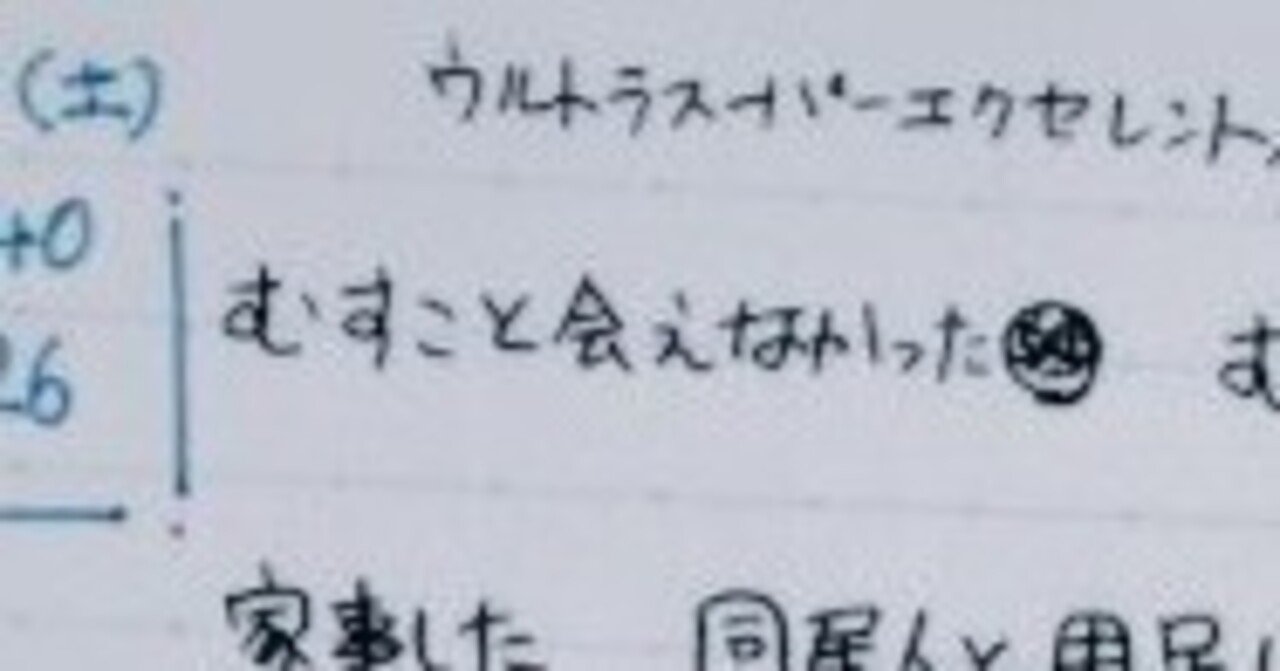 (土) ウルトラスーパーエクセレント
+0
むすこと会えなかった む
26
家事した 同居人と用足し